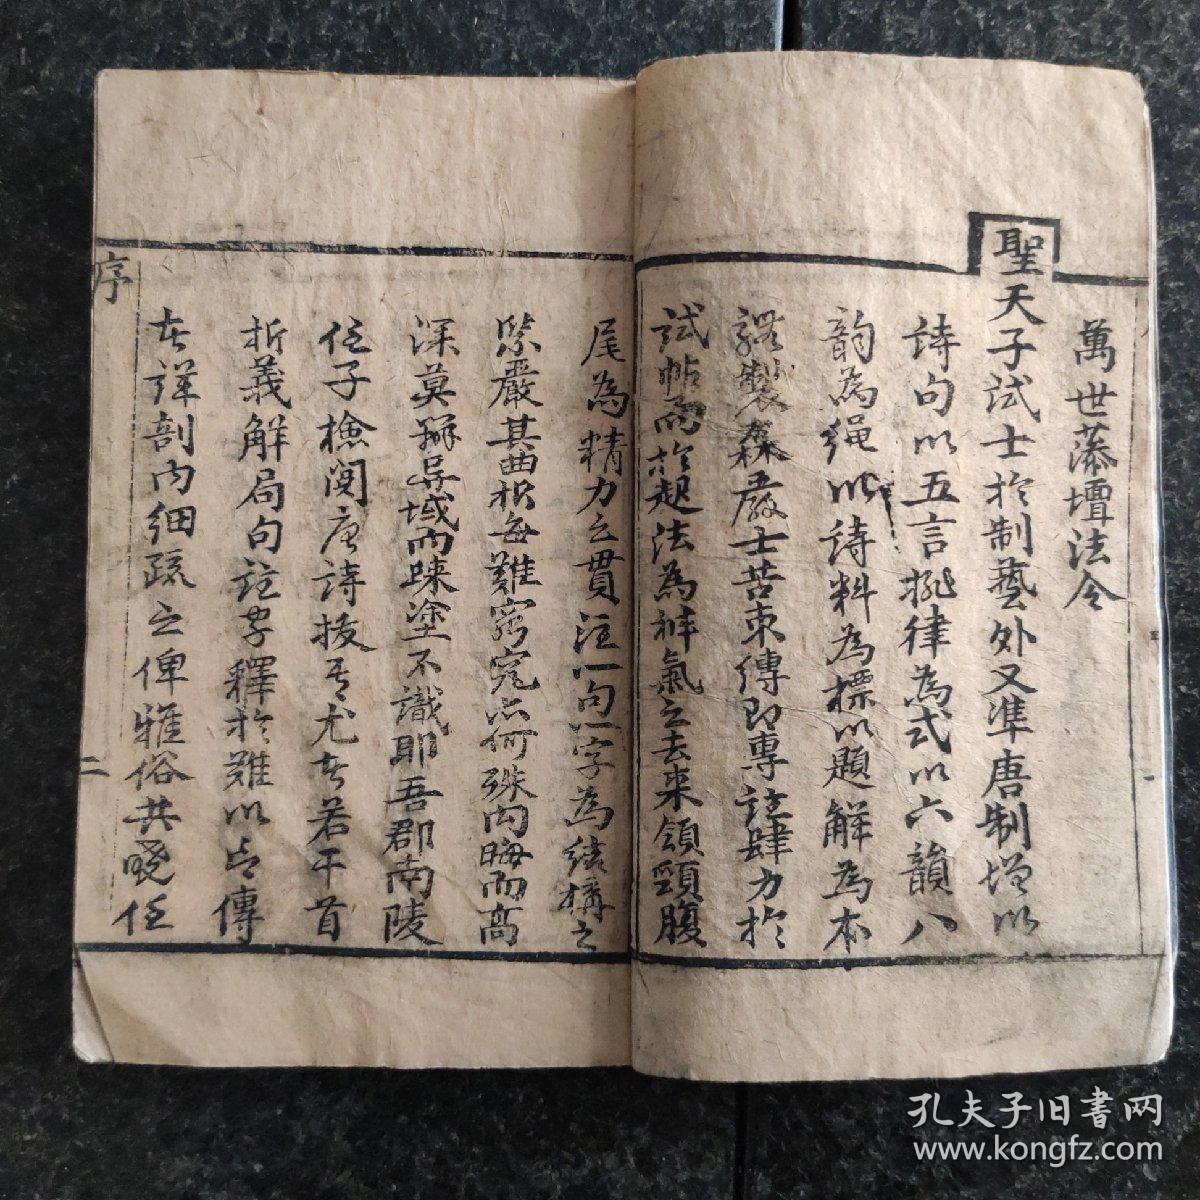 萬世藻壇法令
聖天子試士於制藝外又准唐制增以
詩句以五言排律為式以六韻八
韵為绳以詩料為標以題解為本
製森嚴士苦束傳即專誌肆力於
試帖而於起法為裤氣之去来領頸腹
尾為精力之貫注一句一字為績搆之
緊嚴其曲折每難窮究亦何殊内晦而高
深莫辦异域而睐塗不識耶吾郡南陵
任子檢閱唐詩拔其尤者若干首
析義解局句註字釋於難以言傳
者詳剖内细疏之俾雅俗共曉任
序
二
孔夫子旧书网
www.kongfz.com